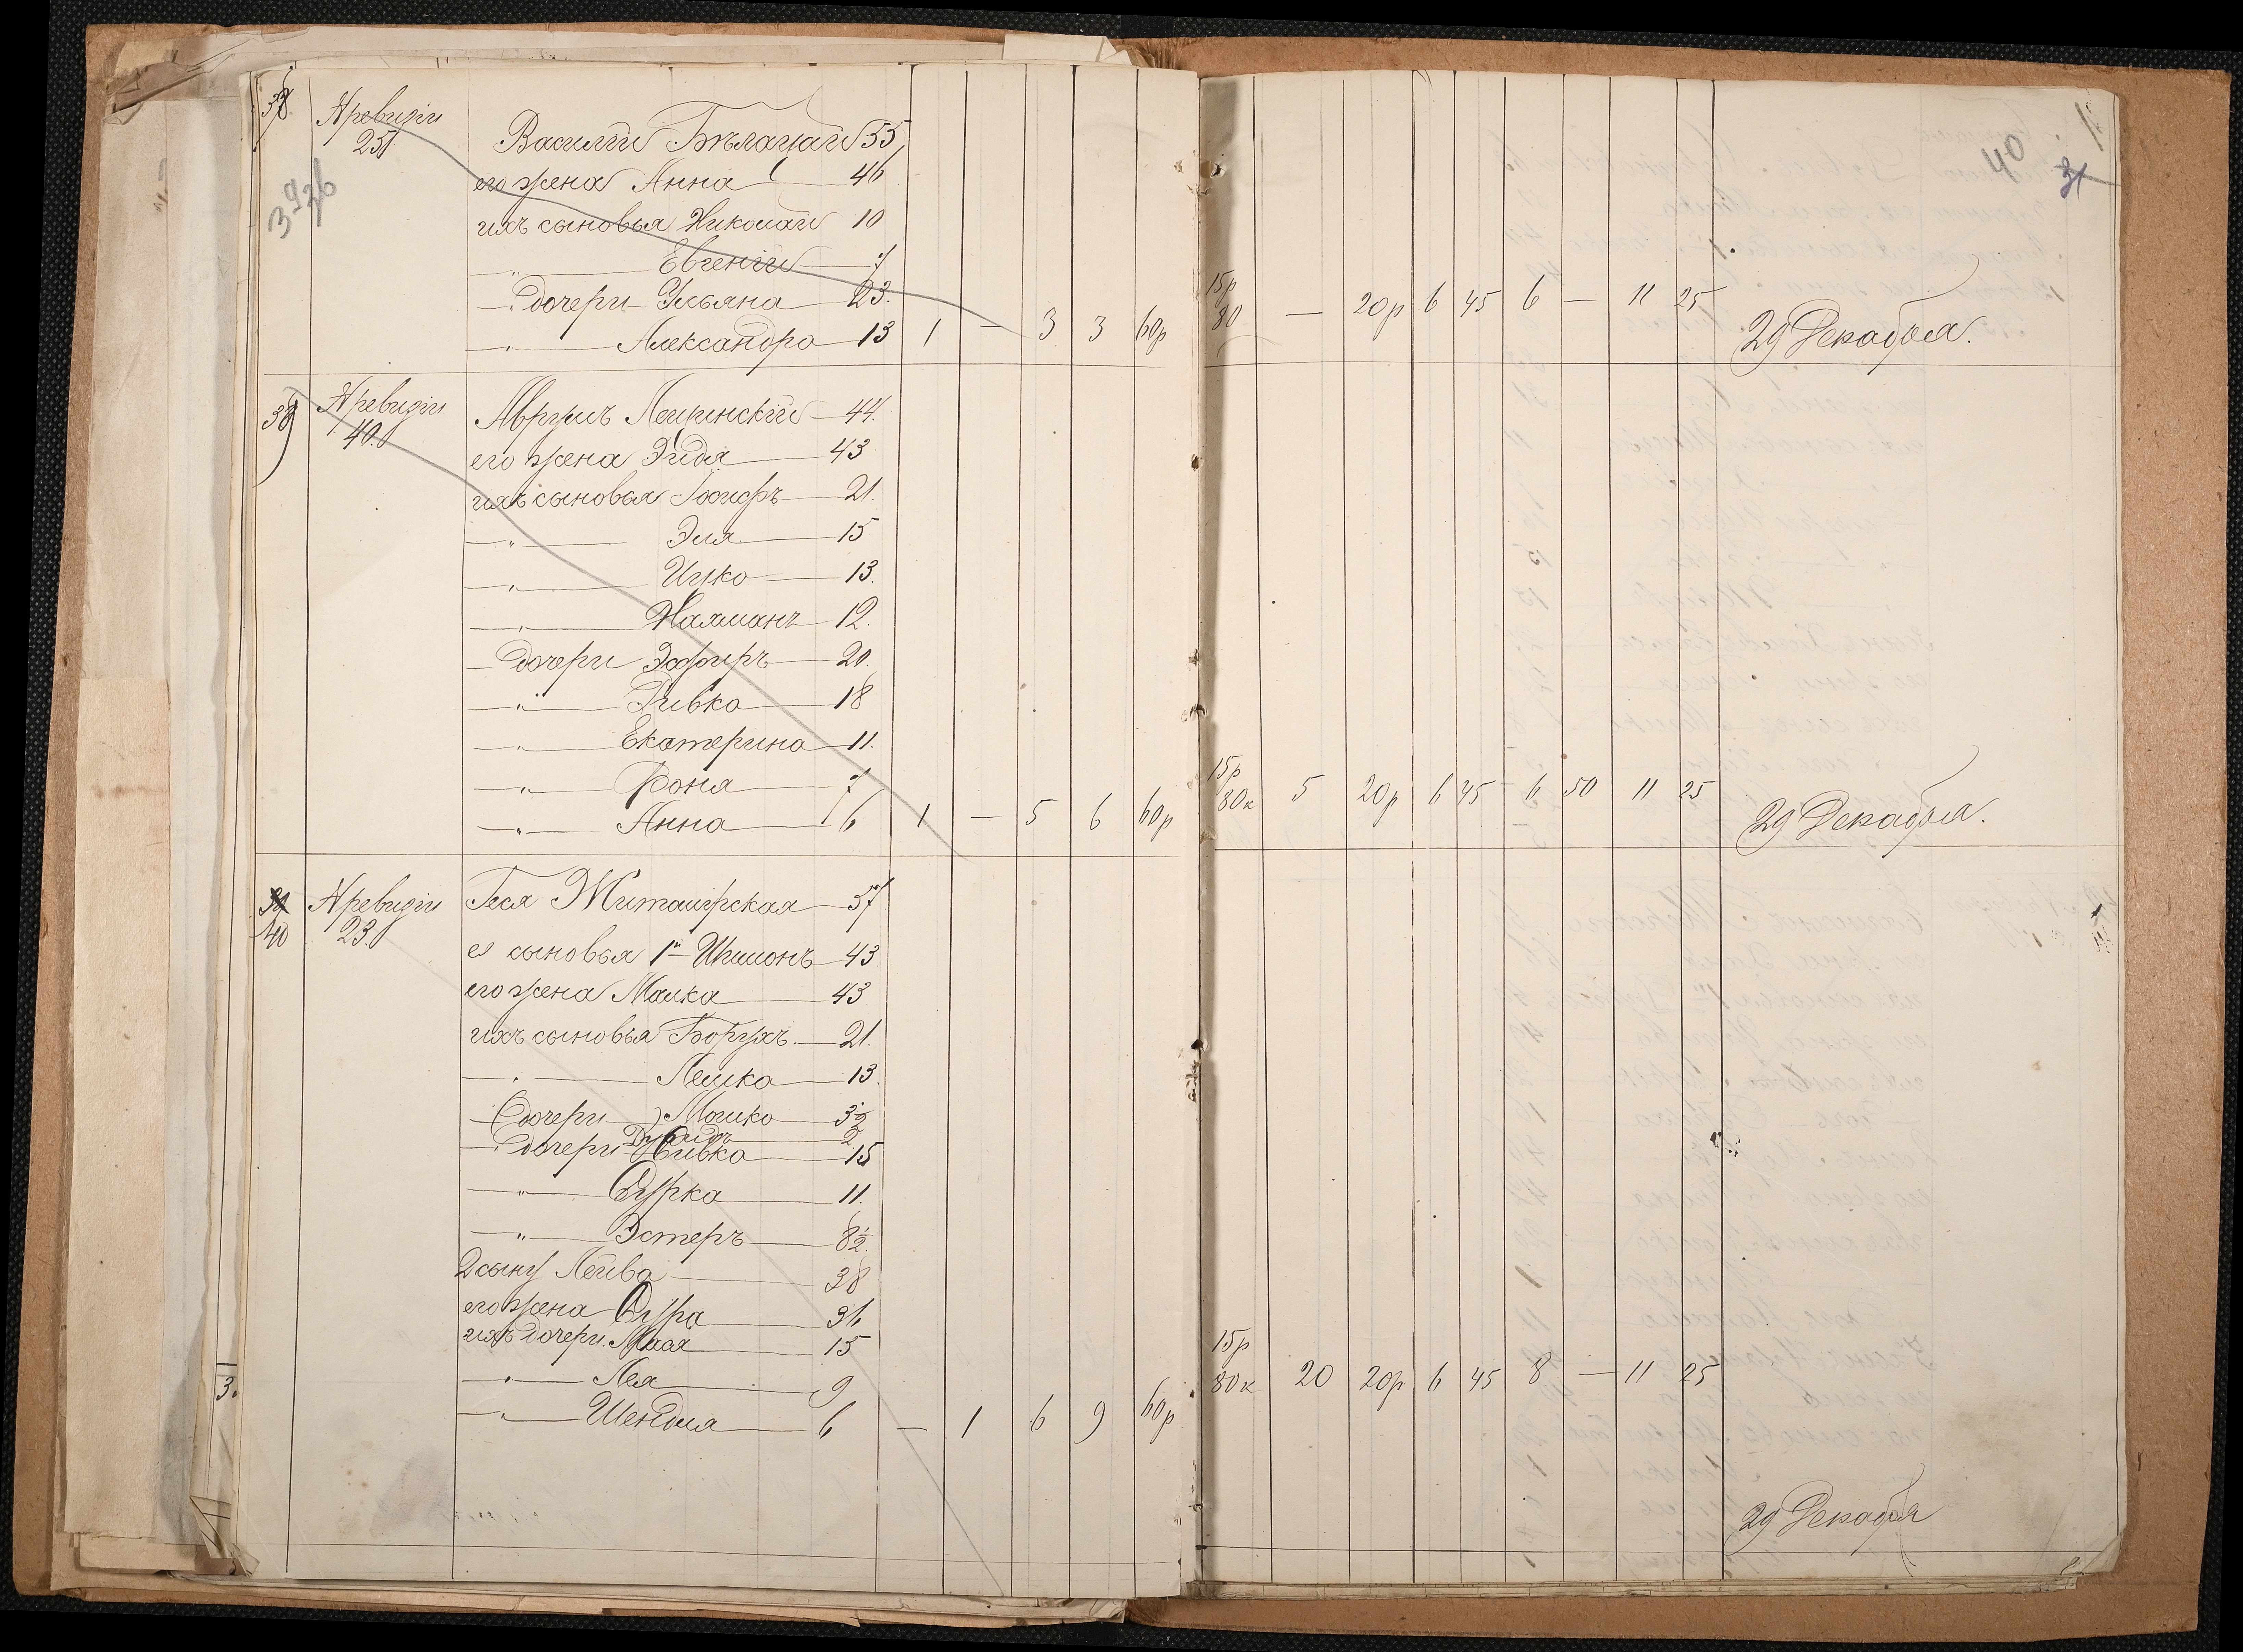 38. № ревизіи Василій Бѣлацай 55
251 его жена Анна 46
39 36 ихъ сыновья Николай 10
" Евгеній 7
" дочери Ульяна 23.
" Александра 13 1 — 3 3 60р 15р 80 — 20р 6 45 6 — 11 25 29 Декабря.
40 31
39 № ревизіи Аврумъ 44.
40. его жена Эйдя 43
ихъ сыновья Іосифъ 21.
" Эля 15
" Ицко 13.
" Нахманъ 12.
— дочери Эсфирь 20.
" Ривка 18
" Екатерина 11.
" Фоня 7
" Анна 6 1 — 5 6 60р 15р 80к 5 20р 6 45 6 50 11 25 29 Декабря.
40 № ревизіи Геся Житомирская 57
23. ея сыновья 1й Шимонъ 43
его жена Малка 43
ихъ сыновья Борухъ 21.
" Лейка 13.
— (дочери) Мошко 3½
Давидъ 2
— дочери Ривка 15
" Сурка 11.
" Эстеръ 8½.
2 сынъ Лейва 38
его жена Сура 36
ихъ дочери Мася 15
" Лея 9
" Шендля 6 — 1 6 9 60р 15р 80к 20 20р 6 45 8 — 11 25
29 Декабря
3.